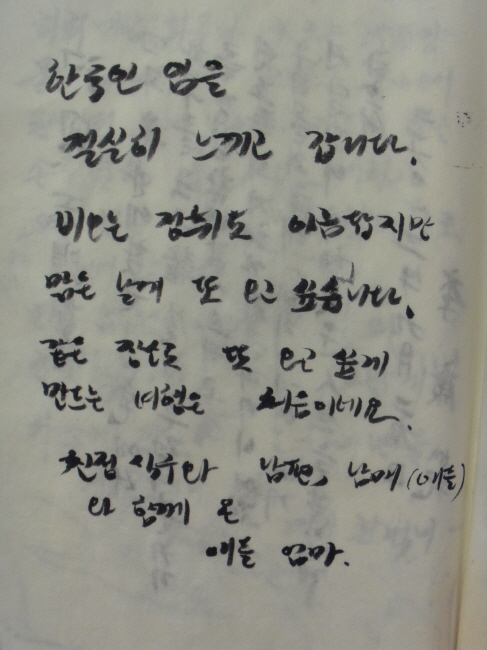 한국인 임을
절실히 느끼고 갑니다.
비오는 정취도 아름답지만
맑은 날에 또 오고 싶습니다.
같은 장소로 또 오고 싶게
만드는 여행은 처음이네요.
친정 식구와 남편, 남매(애들)
와 함께 온
애들 엄마.